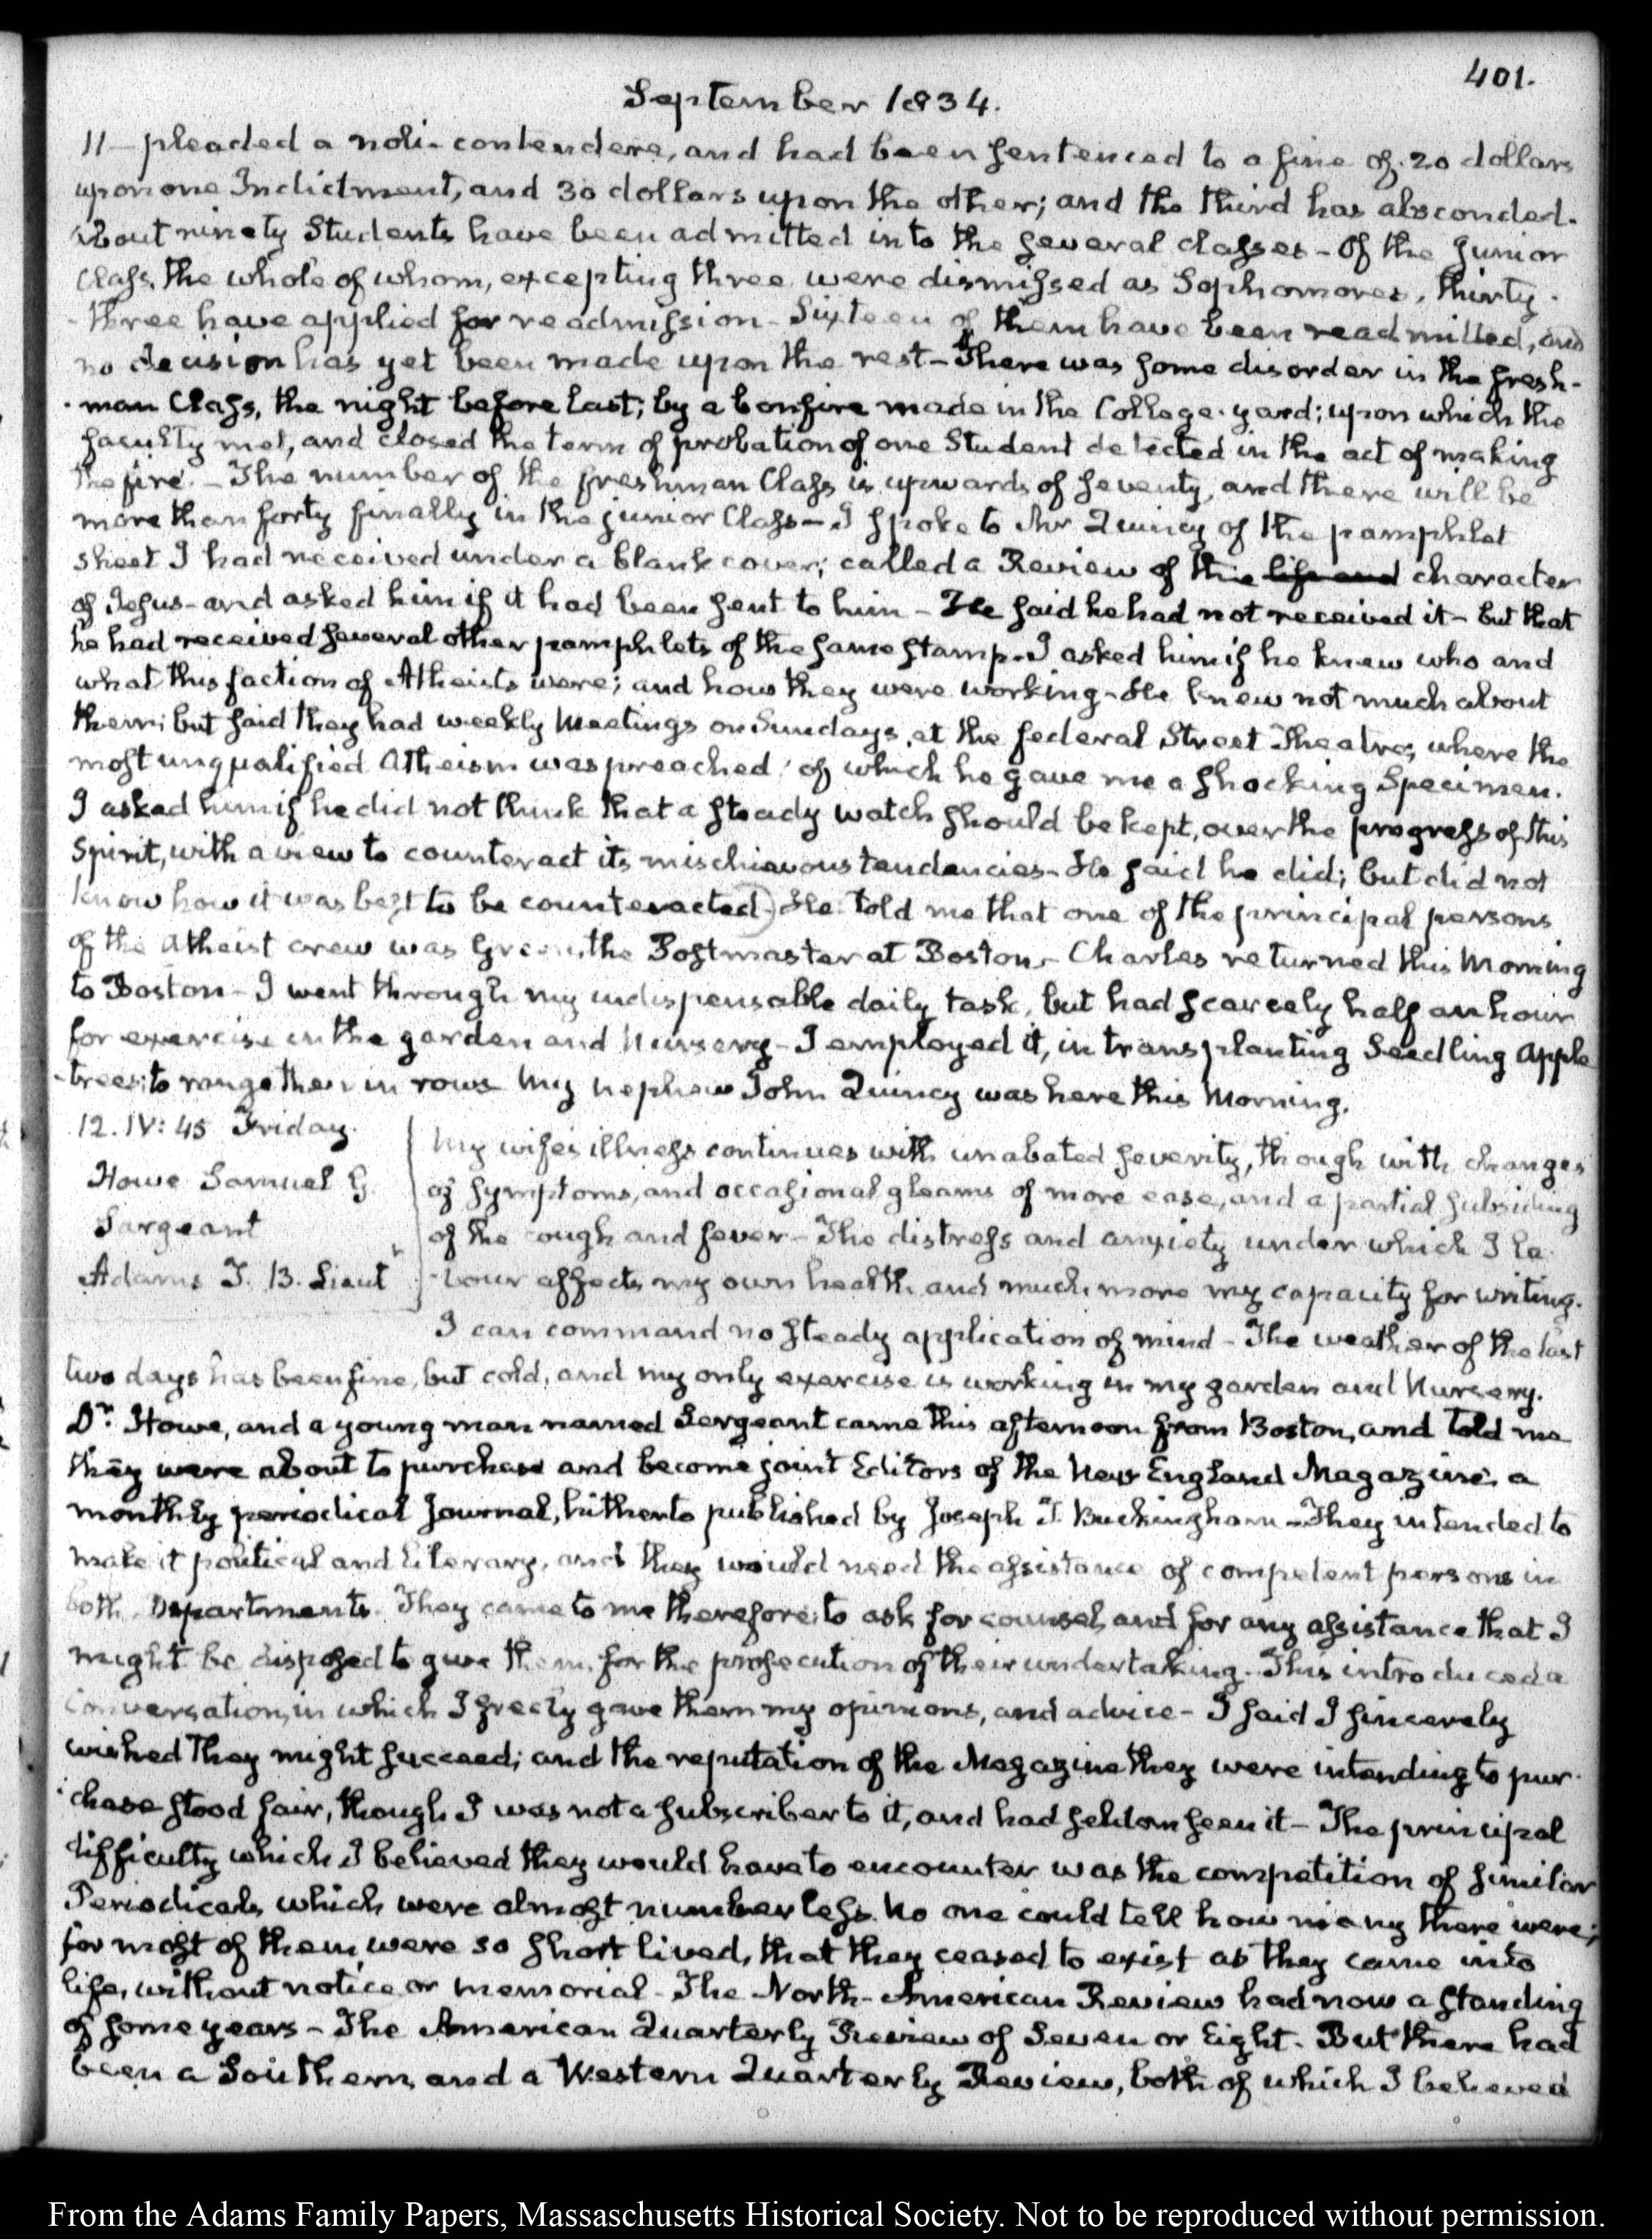 401.
September 1834.
11 — pleaded a noli-contendere, and had been sentenced to a fine of 20 dollars
upon one Indictment, and 30 dollars upon the other; and the third has absconded.
About ninety Students have been admitted into the several classes - Of the Junior
Class, the whole of whom, excepting three were dismissed as Sophomores, thirty-
-three have applied for readmission - Sixteen of them have been readmitted, and
no decision has yet been made upon the rest - There was some disorder in the fresh-
-man Class, the night before last; by a bonfire made in the College-yard; upon which the
faculty met, and closed the term of probation of one Student detected in the act of making
the fire. - The number of the freshman Class is upwards of seventy, and there will be
more than forty finally in the junior Class - I spoke to Mr Quincy of the pamphlet
sheet I had received under a blank cover; called a Review of the life and character
of Jesus - and asked him if it had been sent to him - He said he had not received it - but that
he had received several other pamphlets of the same stamp. I asked him if he knew who and
what this faction of Atheists were; and how they were working - He knew not much about
them; but said they had weekly Meetings on Sundays, at the federal Street Theatre, where the
most unqualified Atheism was preached; of which he gave me a shocking Specimen.
I asked him if he did not think that a steady watch should be kept, over the progress of this
Spirit, with a view to counteract its mischievous tendencies - He said he did; but did not
know how it was best to be counteracted. He told me that one of the principal persons
of the Atheist crew was Green, the Postmaster at Boston - Charles returned this Morning
to Boston - I went through my indispensable daily task, but had scarcely half an hour
for exercise in the garden and Nursery - I employed it, in transplanting Seedling Apple
-trees; to range them in rows My nephew John Quincy was here this Morning.
12. IV: 45 Friday.
Howe Samuel G.
Sargeant
Adams J. B. Lieut
My wife's illness continues with unabated severity, though with changes
of symptoms, and occasional gleams of more ease, and a partial subsiding
of the cough and fever - The distress and anxiety under which I la-
-bour affects my own health, and much more my capacity for writing.
I can command no steady application of mind - The weather of the last
two days has been fine, but cold, and my only exercise is working in my garden and Nursery.
Dr. Howe, and a young man named Sergeant came this afternoon from Boston, and told me
they were about to purchase and become joint Editors of the New England Magazine, a
monthly periodical Journal, hitherto published by Joseph T. Buckingham - They intended to
make it political and literary, and they would need the assistance of competent persons in
both Departments. They came to me therefore to ask for counsel, and for any assistance that I
might be disposed to give them, for the prosecution of their undertaking. This introduced a
Conversation, in which I freely gave them my opinions, and advice - I said I sincerely
wished They might succeed; and the reputation of the Magazine they were intending to pur-
-chase stood fair, though I was not a subscriber to it, and had seldom seen it - The principal
difficulty which I believed they would have to encounter was the competition of similar
Periodicals, which were almost numberless. No one could tell how many there were;
for most of them were so short lived, that they ceased to exist as they came into
life, without notice or memorial - The North-American Review had now a standing
of some years - The American Quarterly Review of Seven or Eight. But there had
been a Southern, and a Western Quarterly Review, both of which I believed
From the Adams Family Papers, Massaschusetts Historical Society. Not to be reproduced without permission.